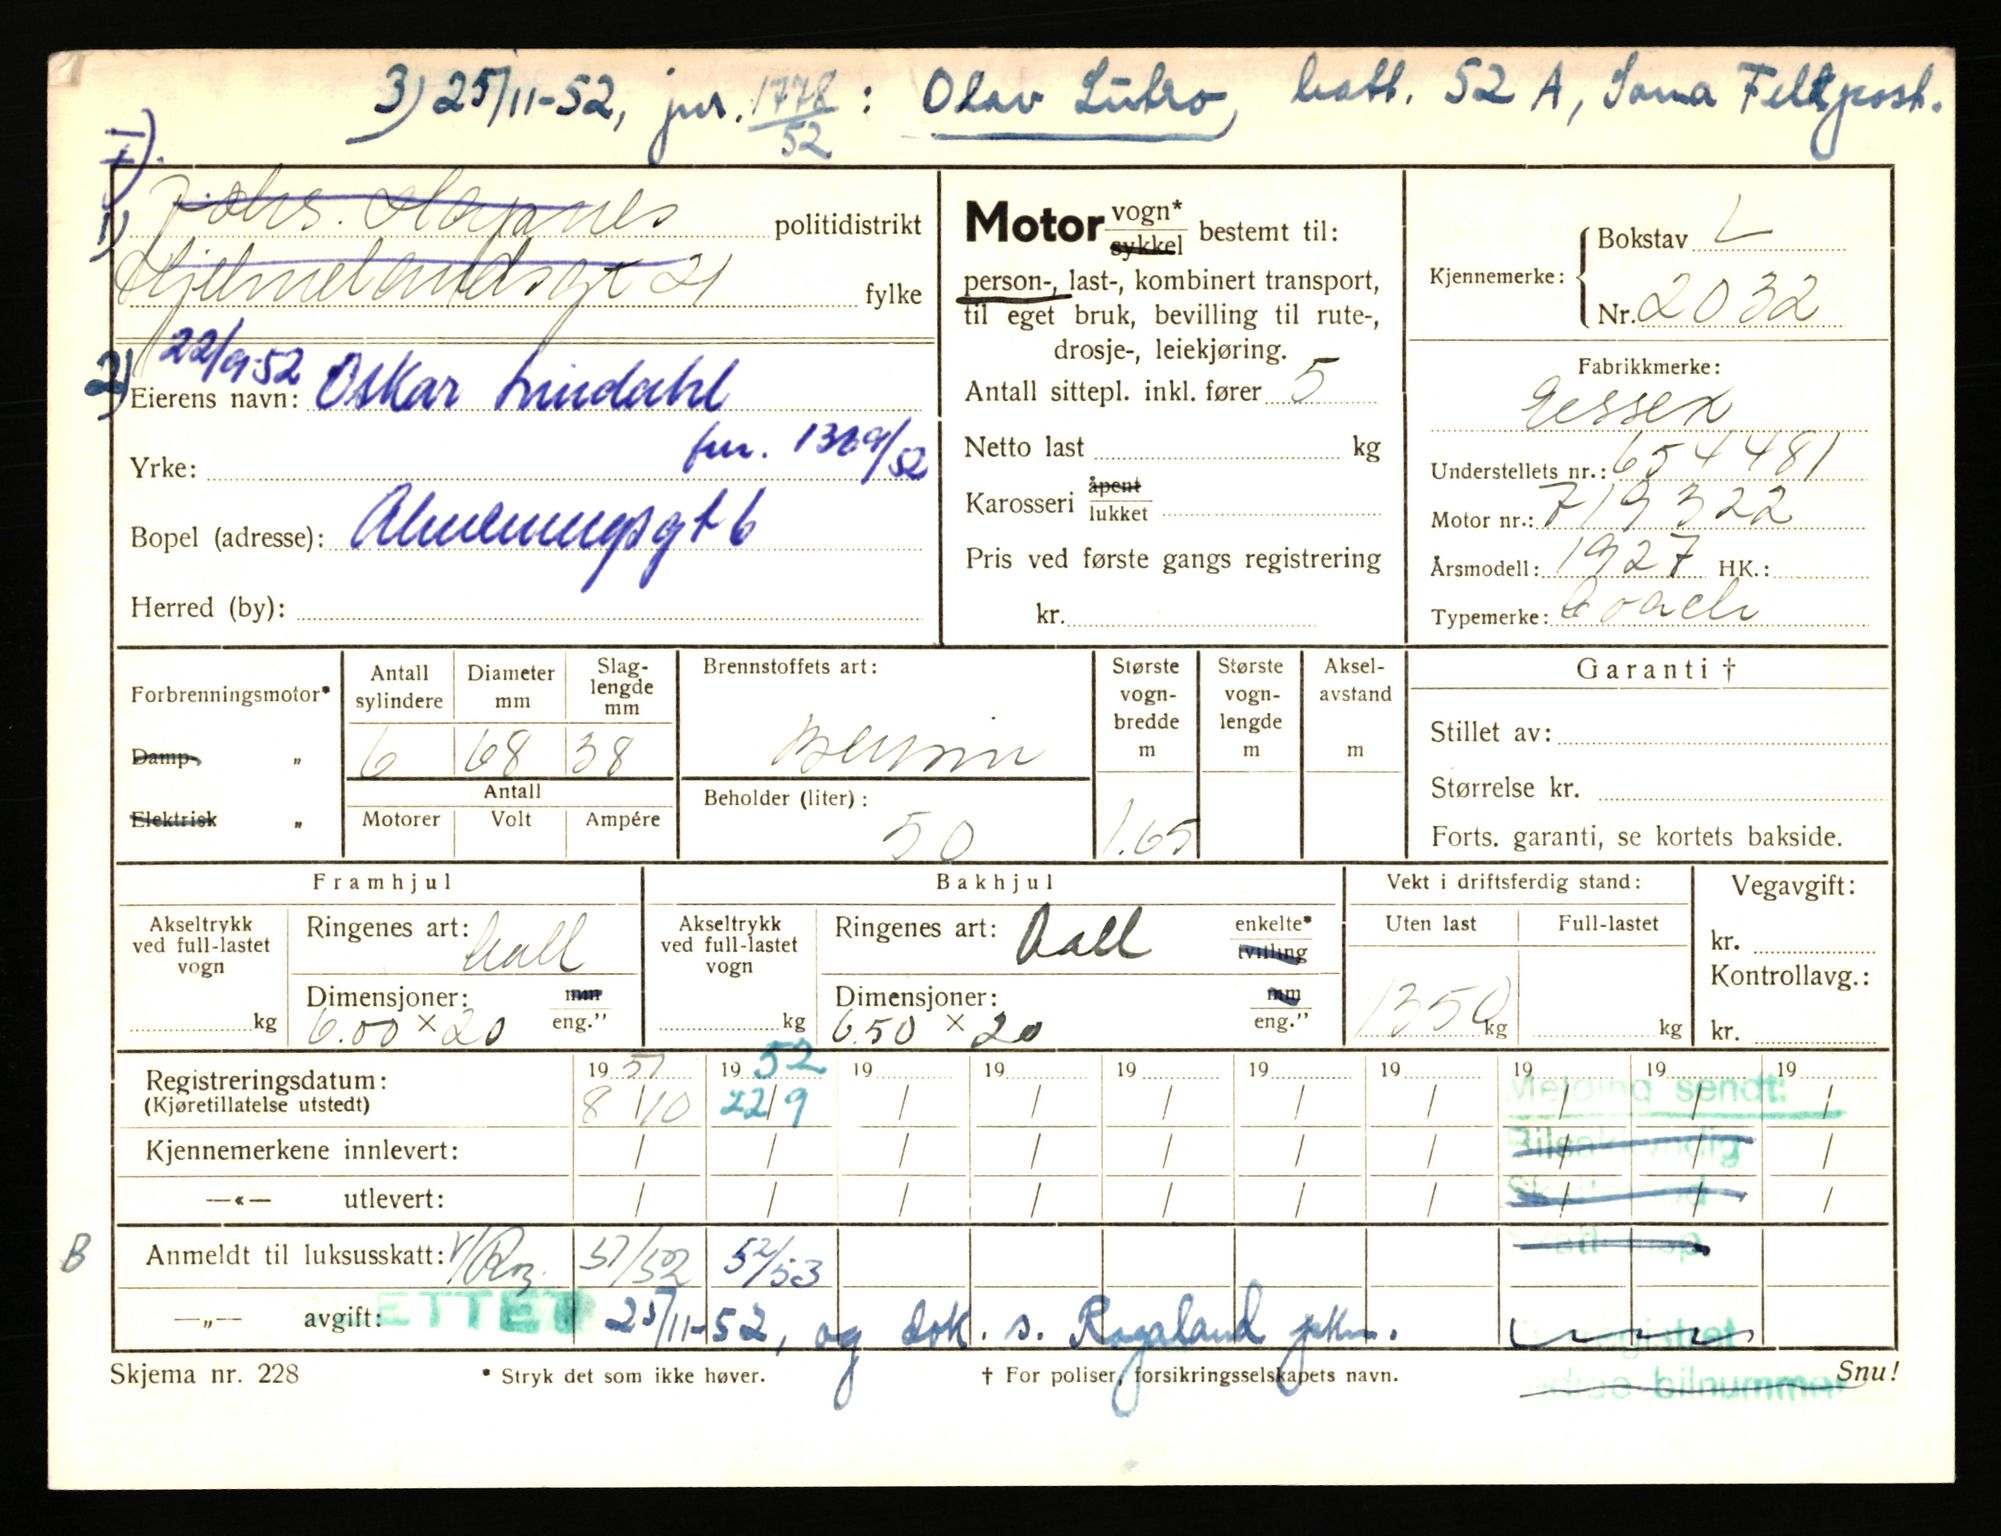 3) 25/11-52, jnr. 1778/52 : Olav Lutro, batt. 52 A, Soma Feltpost.
1)
politidistrikt
Hjelmelandsgt 21 fylke
2) 22/9-52
Eierens navn: Oskar Lindahl
Yrke: jnr. 1369/52
Bopel (adresse): Almenningsgt 6
Herred (by):
Motor vogn* / sykkel bestemt til:
person-, last-, kombinert transport,
til eget bruk, bevilling til rute-,
drosje-, leiekjøring.
Antall sittepl. inkl. fører 5
Netto last kg
Karosseri åpent / lukket
Pris ved første gangs registrering
kr.
Kjennemerke: Bokstav L
Nr. 2032
Fabrikkmerke:
Essex
Understellets nr.: 654481
Motor nr.: 719322
Årsmodell: 1927 HK.:
Typemerke: Coach
Forbrenningsmotor*
Damp- „
Elektrisk „
Antall sylindere
Diameter mm
Slag-lengde mm
6 68 38
Antall
Motorer Volt Ampére
Brennstoffets art:
Bensin
Beholder (liter):
50
Største vogn-bredde m
1.65
Største vogn-lengde m
Aksel-avstand m
Garanti †
Stillet av:
Størrelse kr.
Forts. garanti, se kortets bakside.
Framhjul
Akseltrykk ved full-lastet vogn
kg
Ringenes art: ball
Dimensjoner: mm / eng."
6.00 × 20
Bakhjul
Akseltrykk ved full-lastet vogn
kg
Ringenes art: ball enkelte* / tvilling
Dimensjoner: mm / eng."
6.50 × 20
Vekt i driftsferdig stand:
Uten last Full-lastet
1350 kg kg
Vegavgift:
kr.
Kontrollavg.:
kr.
19 51 19 52 19 19 19 19 19 19 19 19
Registreringsdatum:
(Kjøretillatelse utstedt)
8/10 22/9 / / / / / / / /
Melding sendt:
Kjennemerkene innlevert: / / / / / / / / / /
Bilsakkyndig
—«— utlevert: / / / / / / / / / /
B Anmeldt til luksusskatt: 51/52 52/53
—„— avgift: 25/11-52, og dok. s. Rogaland pkm.
bilnummer
Skjema nr. 228
* Stryk det som ikke høver.
† For poliser, forsikringsselskapets navn.
Snu!